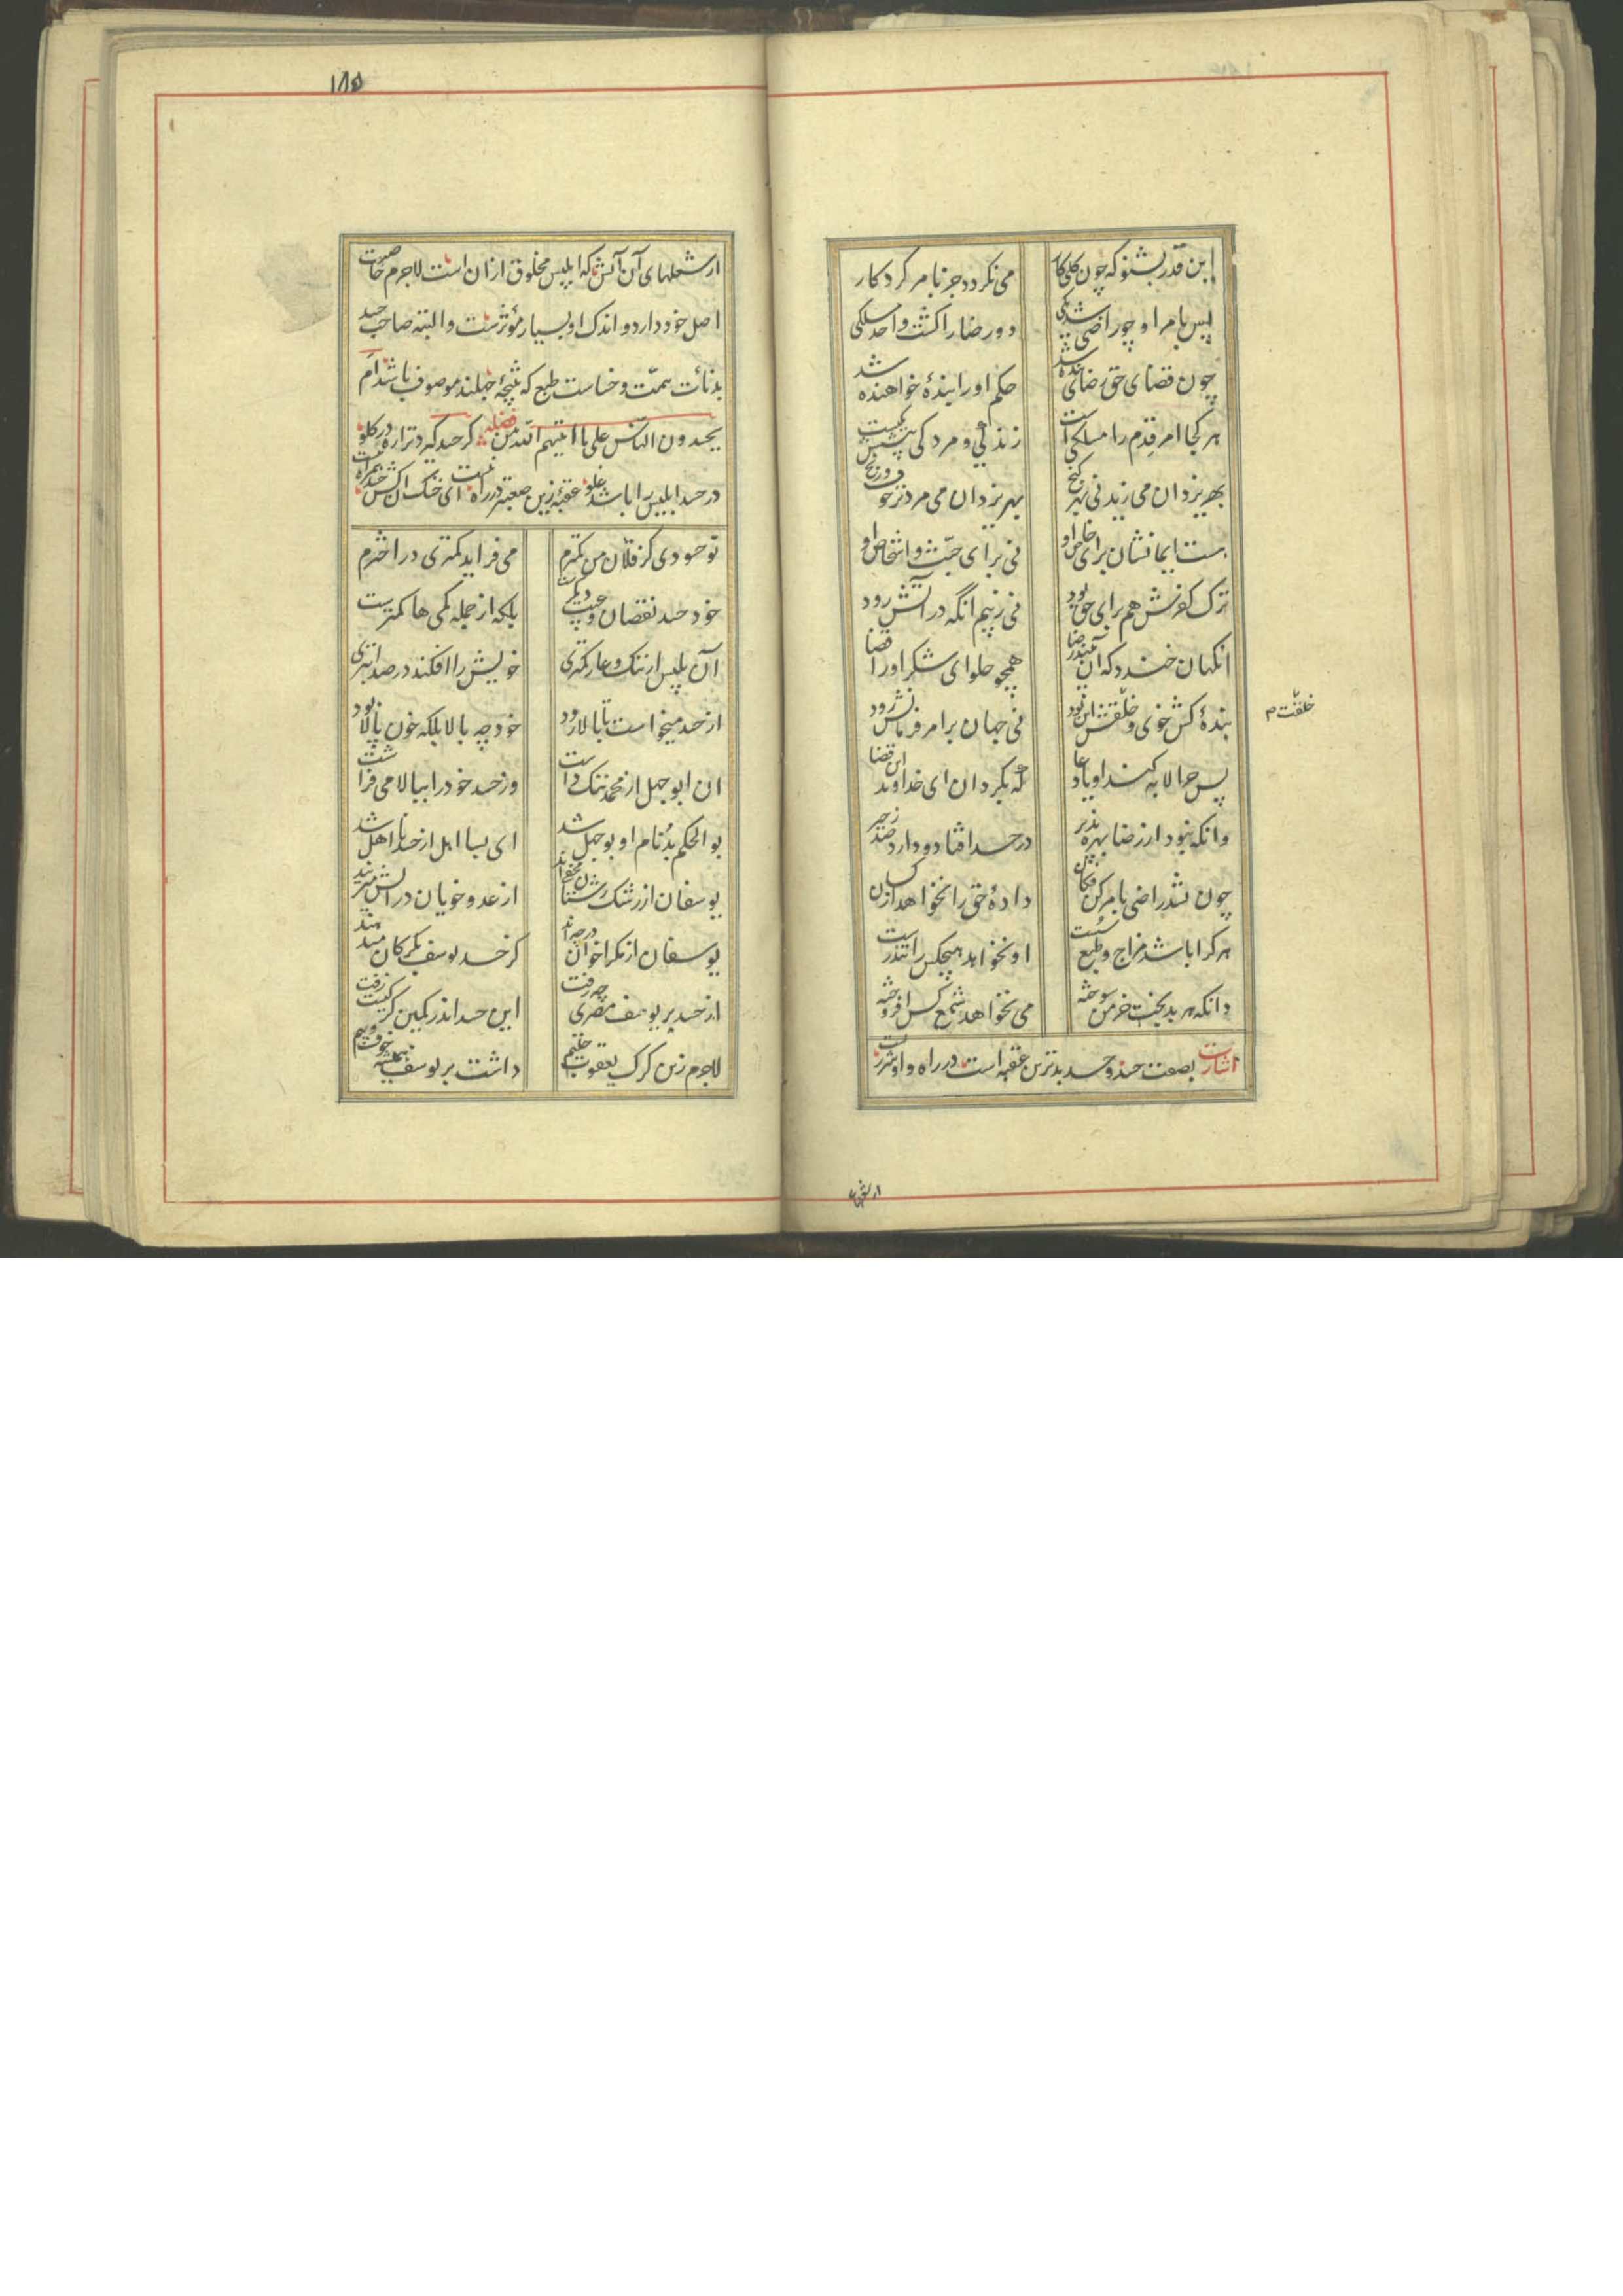 این قدر بشنو که چون کلی کار می نکردد جز بامر کردکار
پس بامر او چو راضی شد یکی دو رضا را کشت واحد مسلکی
چون قضای حق رضای بنده شد حکم او را بندهٔ خواهنده شد
هر کجا امر قدم را مسلکی است زندکی و مردکی پیشش یکیست
بهر یزدان می زید نی بهر کنج بهر یزدان می مرد نز خوف و رنج
هست ایمانشان برای خاص او نی برای جنت و اشخاص او
ترک کفرش هم برای حق بود نی ز بیم انکه در آتش رود
انکهان خندد که آن بیند رضا همچو حلوای شکر او را قضا
بندهٔ کش خوی و خلقتش این بود نی جهان بر امر فرمانش رود
خلقت م
پس چرا لابه کند او یا دعا که بکردان ای خداوند این قضا
وانکه نبود از رضا بهره پذیر در حسد افتاد و دارد صد زحیر
چون نشد راضی بامر کن فکان دادهٔ حق را نخواهد از کسان
هر کرا باشد مزاج و طبع سست او نخواهد هیچکس را تندرست
دانکه هر بدبخت خرمن سوخته می نخواهد شمع کس افروخته
اشارت بصفت حسد و حسد بدترین عقبه است در راه و او شررست
از شعلهای
۱۸۵
از شعلهای آن آتش که ابلیس مخلوق از ان است لاجرم خاصیت
اصل خود دارد و اندک او بسیار مؤثرست و البته صاحب حسد
بدنائت همت و خساست طبع که نتیجهٔ جبلند موصوف باشد اَم
یحسدون الناس علی ما اتیهم الله من فضله کر حسد کیرد ترا ره در کلو
در حسد ابلیس را باشد غلو عقبهٔ زین صعبتر در راه نیست ای خنک انکش حسد همراه نیست
تو حسودی کز فلان من کمترم می فزاید کمتری در اخترم
خود حسد نقصان و عیبی دیکرست بلکه از جمله کمی ها کمترست
آن بلیس از ننک و عار کمتری خویش را افکند در صد ابتری
از حسد میخواست تا بالا رود خود چه بالا بلکه خون پالا بود
ان ابو جهل از محمد ننک داشت وز حسد خود را ببالا می فراشت
بو الحکم بُد نام او بو جهل شد ای بسا اهل از حسد نا اهل شد
یوسفان از رشک زشتان مخفی اند از عدو خوبان در آتش میزیند
یوسفان از مکر اخوان در چه اند کز حسد یوسف بکرکان میدهند
از حسد بر یوسف مصری چه رفت این حسد اندر کمین کرکیست زفت
لاجرم زین کرک یعقوب حلیم داشت بر یوسف همیشه خوف و بیم